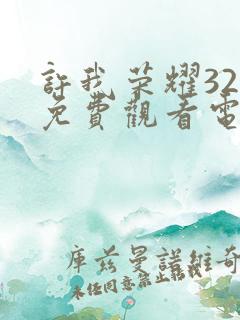 許我荣耀32
免費觀看電
庫兹曼諾維奇
未经同意禁止转载